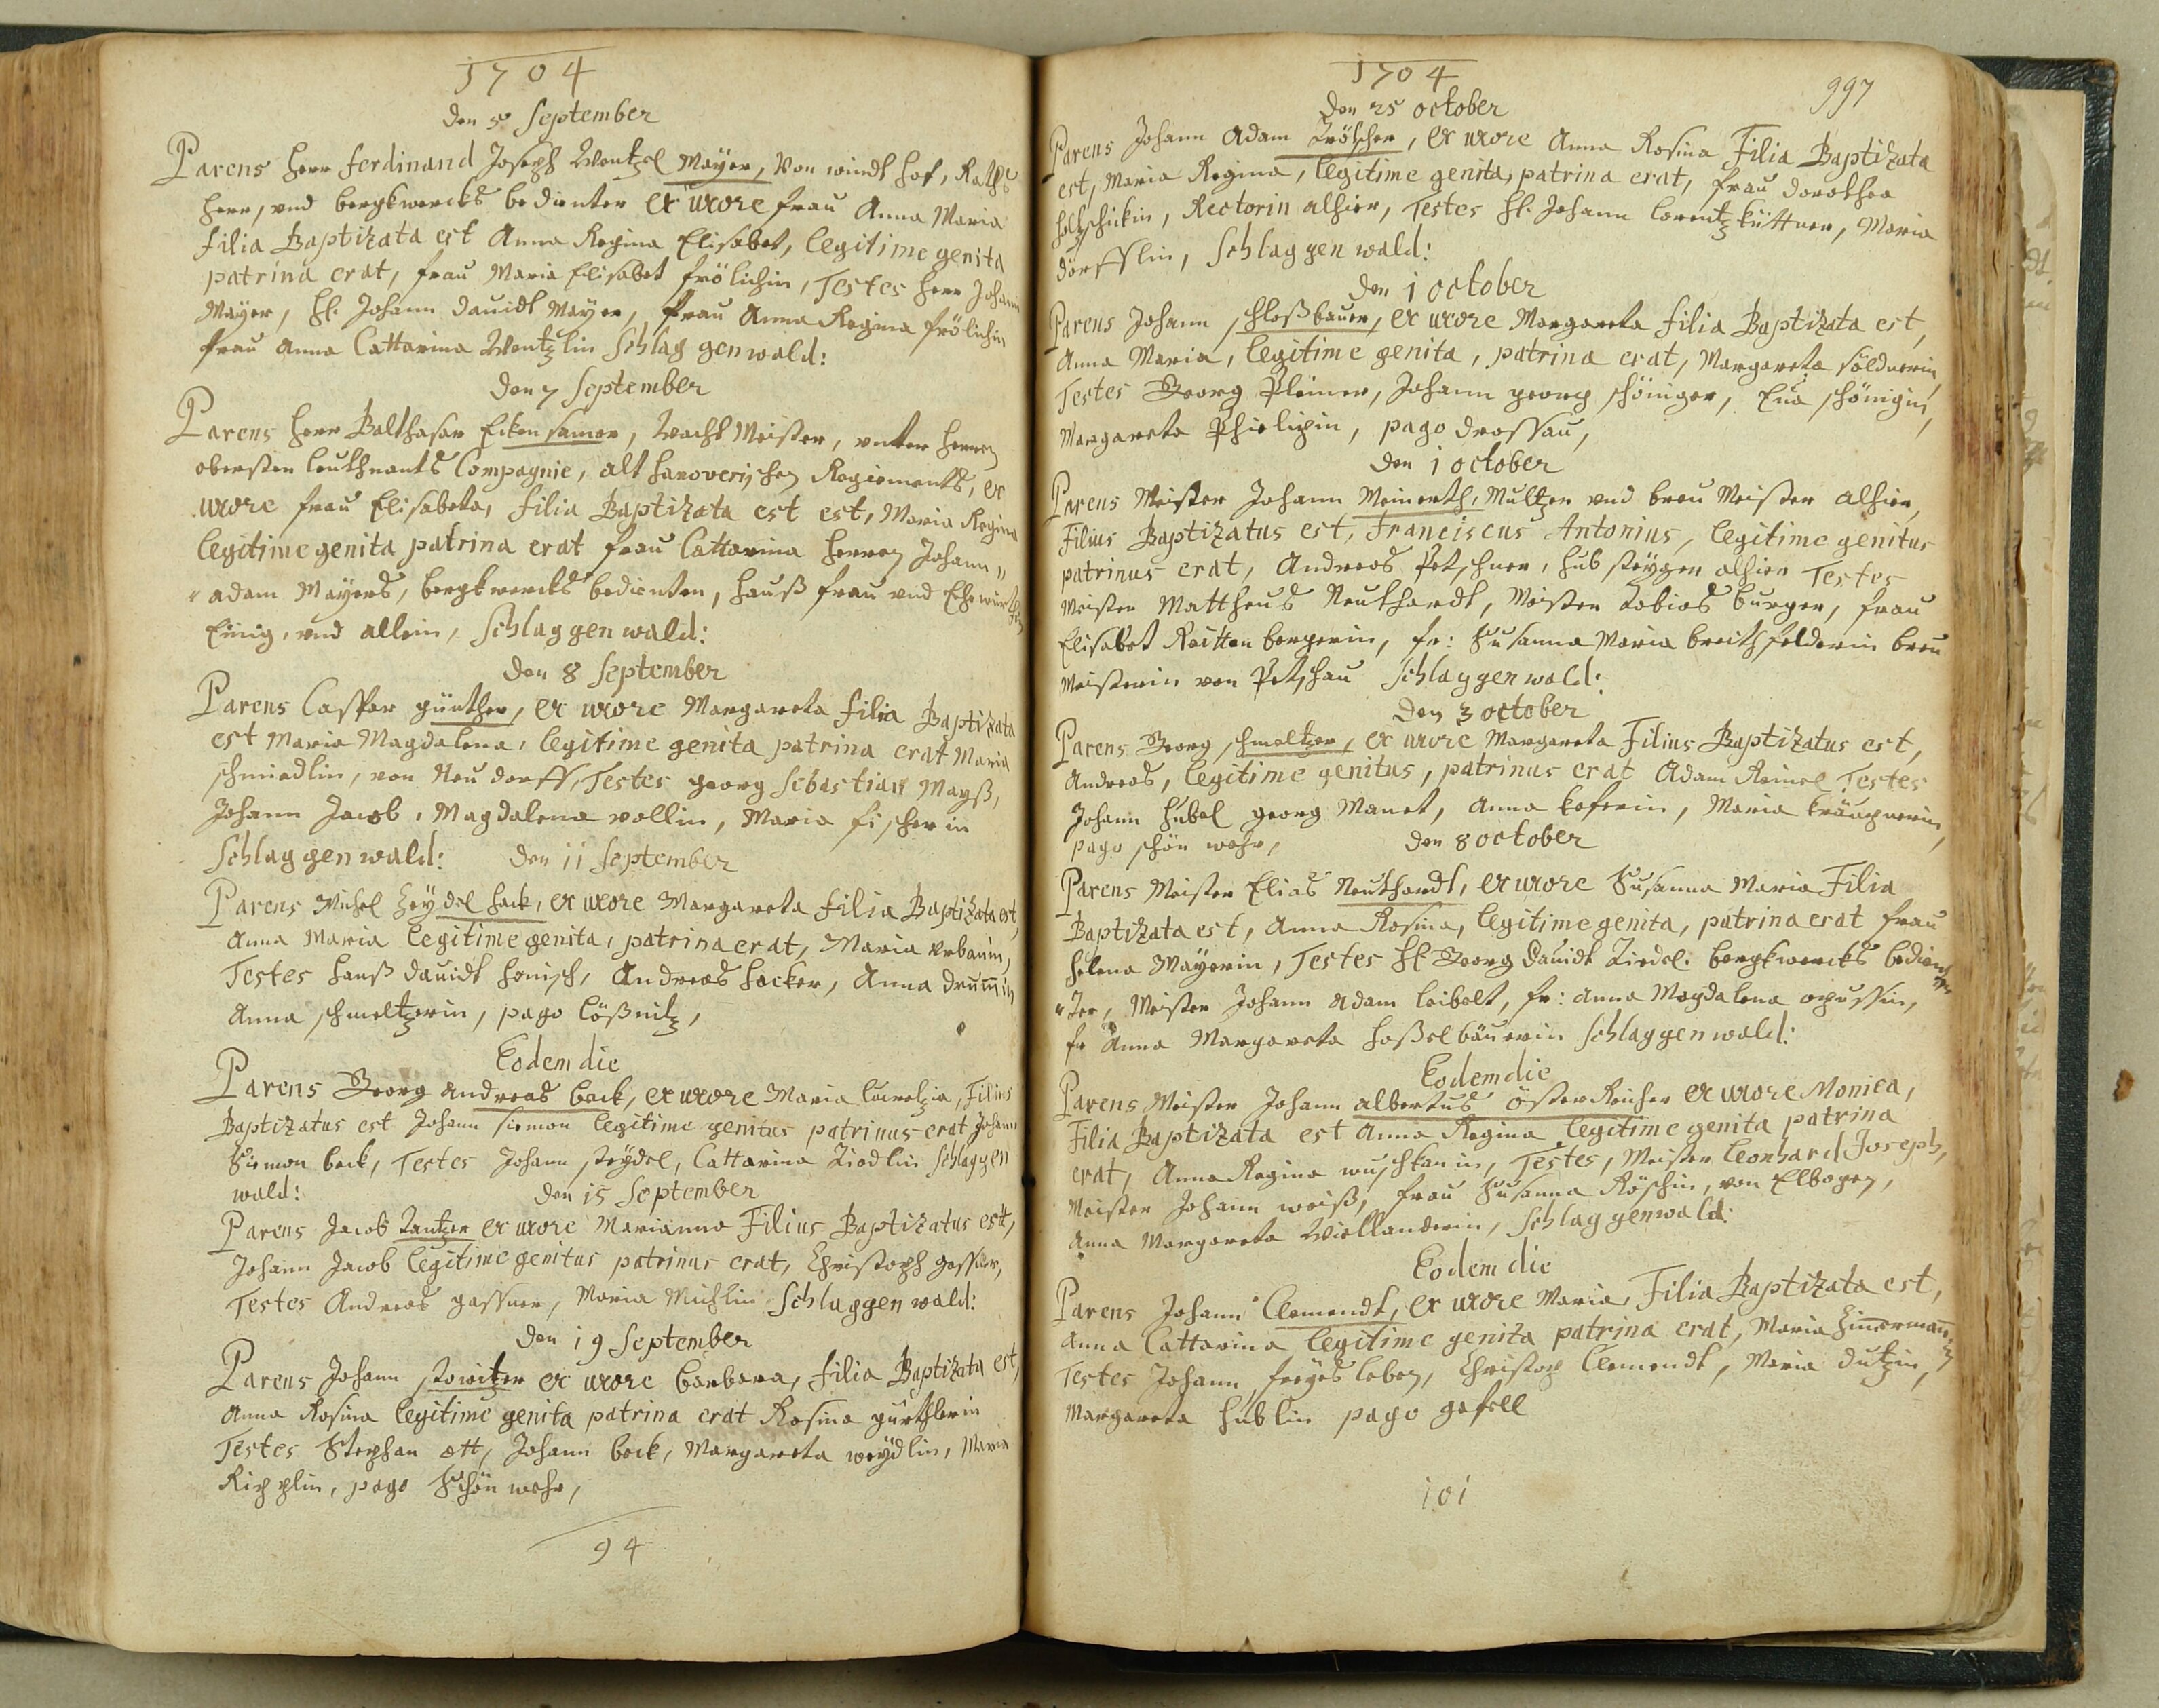 1704
den 5 September
Parens Herr Ferdinand Joseph Wentzel Mayer, Von windt hof, Raths
Herr, vnd bergkwercks bedienter ex uxore frau Anna Maria
filia Baptizata est Anna Regina Elisabet, legitime genita
patrina erat, frau Maria Elisabet frölichin, Testes Herr Johann
Mayer, H. Johann dauidt Mayer, frau Anna Regina frölichin
frau Anna Cattarina Wentzlin Schlaggenwald:
den 7 September
Parens Herr Balthasar Eckensamer, Wacht Meister, vnter herren
obersten leuthnants Compagnie, alt hanoverischen Regiements, ex
uxore frau Elisabeta, filia Baptizata est est, Maria Regina
legitime genita patrina erat frau Cattarina herren Johann
adam Mayers, bergkwercks bedienten, hauß frau vnd Ehe
Einig, vnd allein, Schlaggenwald:
den 8 September
Parens Casper günther, ex uxore Margareta filia Baptizata
est Maria Magdalena, legitime genita patrina erat Maria
schmiedlin, von Neudorff, Testes georg Sebastian Mayß,
Johann Jacob, Magdalena vollin, Maria fischerin
Schlaggenwald: den 11 September
Parens Michel Heydel hack, ex uxore Margareta filia Baptizata est,
Anna Maria legitime genita, patrina erat, Maria vrbanin,
Testes hanß dauidt honisch, Andreas hacker, Anna drumin
Anna schmeltzerin, pago lößnitz,
Eodem die
Parens Georg andreas beck, ex uxore Maria lucretzia, Filius
Baptizatus est Johann siemon legitime genitus patrinus erat Johann
Siemon beck, Testes Johann seydel, Cattarina Liedlin Schlaggen
wald: den 15 September
Parens Jacob Lantzer ex uxore Marianna Filius Baptizatus est,
Johann Jacob legitime genitus patrinus erat, Christoph gassner,
Testes Andreas gassner, Maria Michlin Schlaggenwald:
den 19 September
Parens Johann stowitzer ex uxore barbara, filia Baptizata est,
Anna Rosina legitime genita patrina erat Rosina gürthlerin
Testes Stephan ott, Johann beck, Margareta weydlin, Maria
Ripplin, pago Schönwehr,
94
1704
997
den 25 october
Parens Johann Adam Tröscher, ex uxore Anna Rosina Filia Baptizata
est, Maria Regina, legitime genita, patrina erat, frau dorothea
holtzschickin, Rectorin alhier, Testes H. Johann lorentz küttner, Maria
dörfflin, Schlaggenwald:
den 1 october
Parens Johann schloßbauer, ex uxore Margareta filia Baptizata est,
Anna Maria, legitime genita, patrina erat, Margareta söldnerin,
Testes Georg Pleiner, Johann georg schöniger, Eua schönigin,
Margareta Phielipin, pago drossau,
den 1 october
Parens Meister Johann Meinerth, Multzer vnd breu Meister alhier,
Filius Baptizatus est, Franciscus Antonius, legitime genitus
patrinus erat, Andreas Petschner, hub steyger alhier Testes
Meister Mattheus Neuthardt, Meister Tobias burger, frau
Elisabet Reittenbergerin, fr: Susanna Maria breithfelderin breu
Meisterin von Petschau Schlaggenwald:
den 3 october
Parens Georg schmeltzer, ex uxore Margareta Filius Baptizatus est,
Andreas, legitime genitus, patrinus erat Adam Reinel Testes
Johann hubel georg Manet, Anna koferin, Maria
pago schön wehr, den 8 october
Parens Meister Elias Neuthardt, ex uxore Susanna Maria Filia
Baptizata est, Anna Rosina, legitime genita, patrina erat frau
helena Mayerin, Testes H. Georg dauidt Liedel. bergkwercks bedien
ter, Meister Johann Adam leibelt, fr: Anna Magdalena
fr Anna Margareta haßelbäuerin Schlaggenwald:
Eodem die
Parens Meister Johann albertus österReicher ex uxore Monica,
Filia Baptizata est Anna Regina legitime genita patrina
erat, Anna Regina wuschkanin, Testes, Meister leonhard Joseph,
Meister Johann weiß, frau Susanna Röschin, von Elbogen,
Anna Margareta Wiellanderin, Schlaggenwald:
Eodem die
Parens Johann Clemendt, ex uxore Maria, Filia Baptizata est,
Anna Cattarina legitime genita patrina erat, Maria
Testes Johann freyes leben, Christoph Clemendt, Maria dutzin,
Margareta hublin pago gefell
101